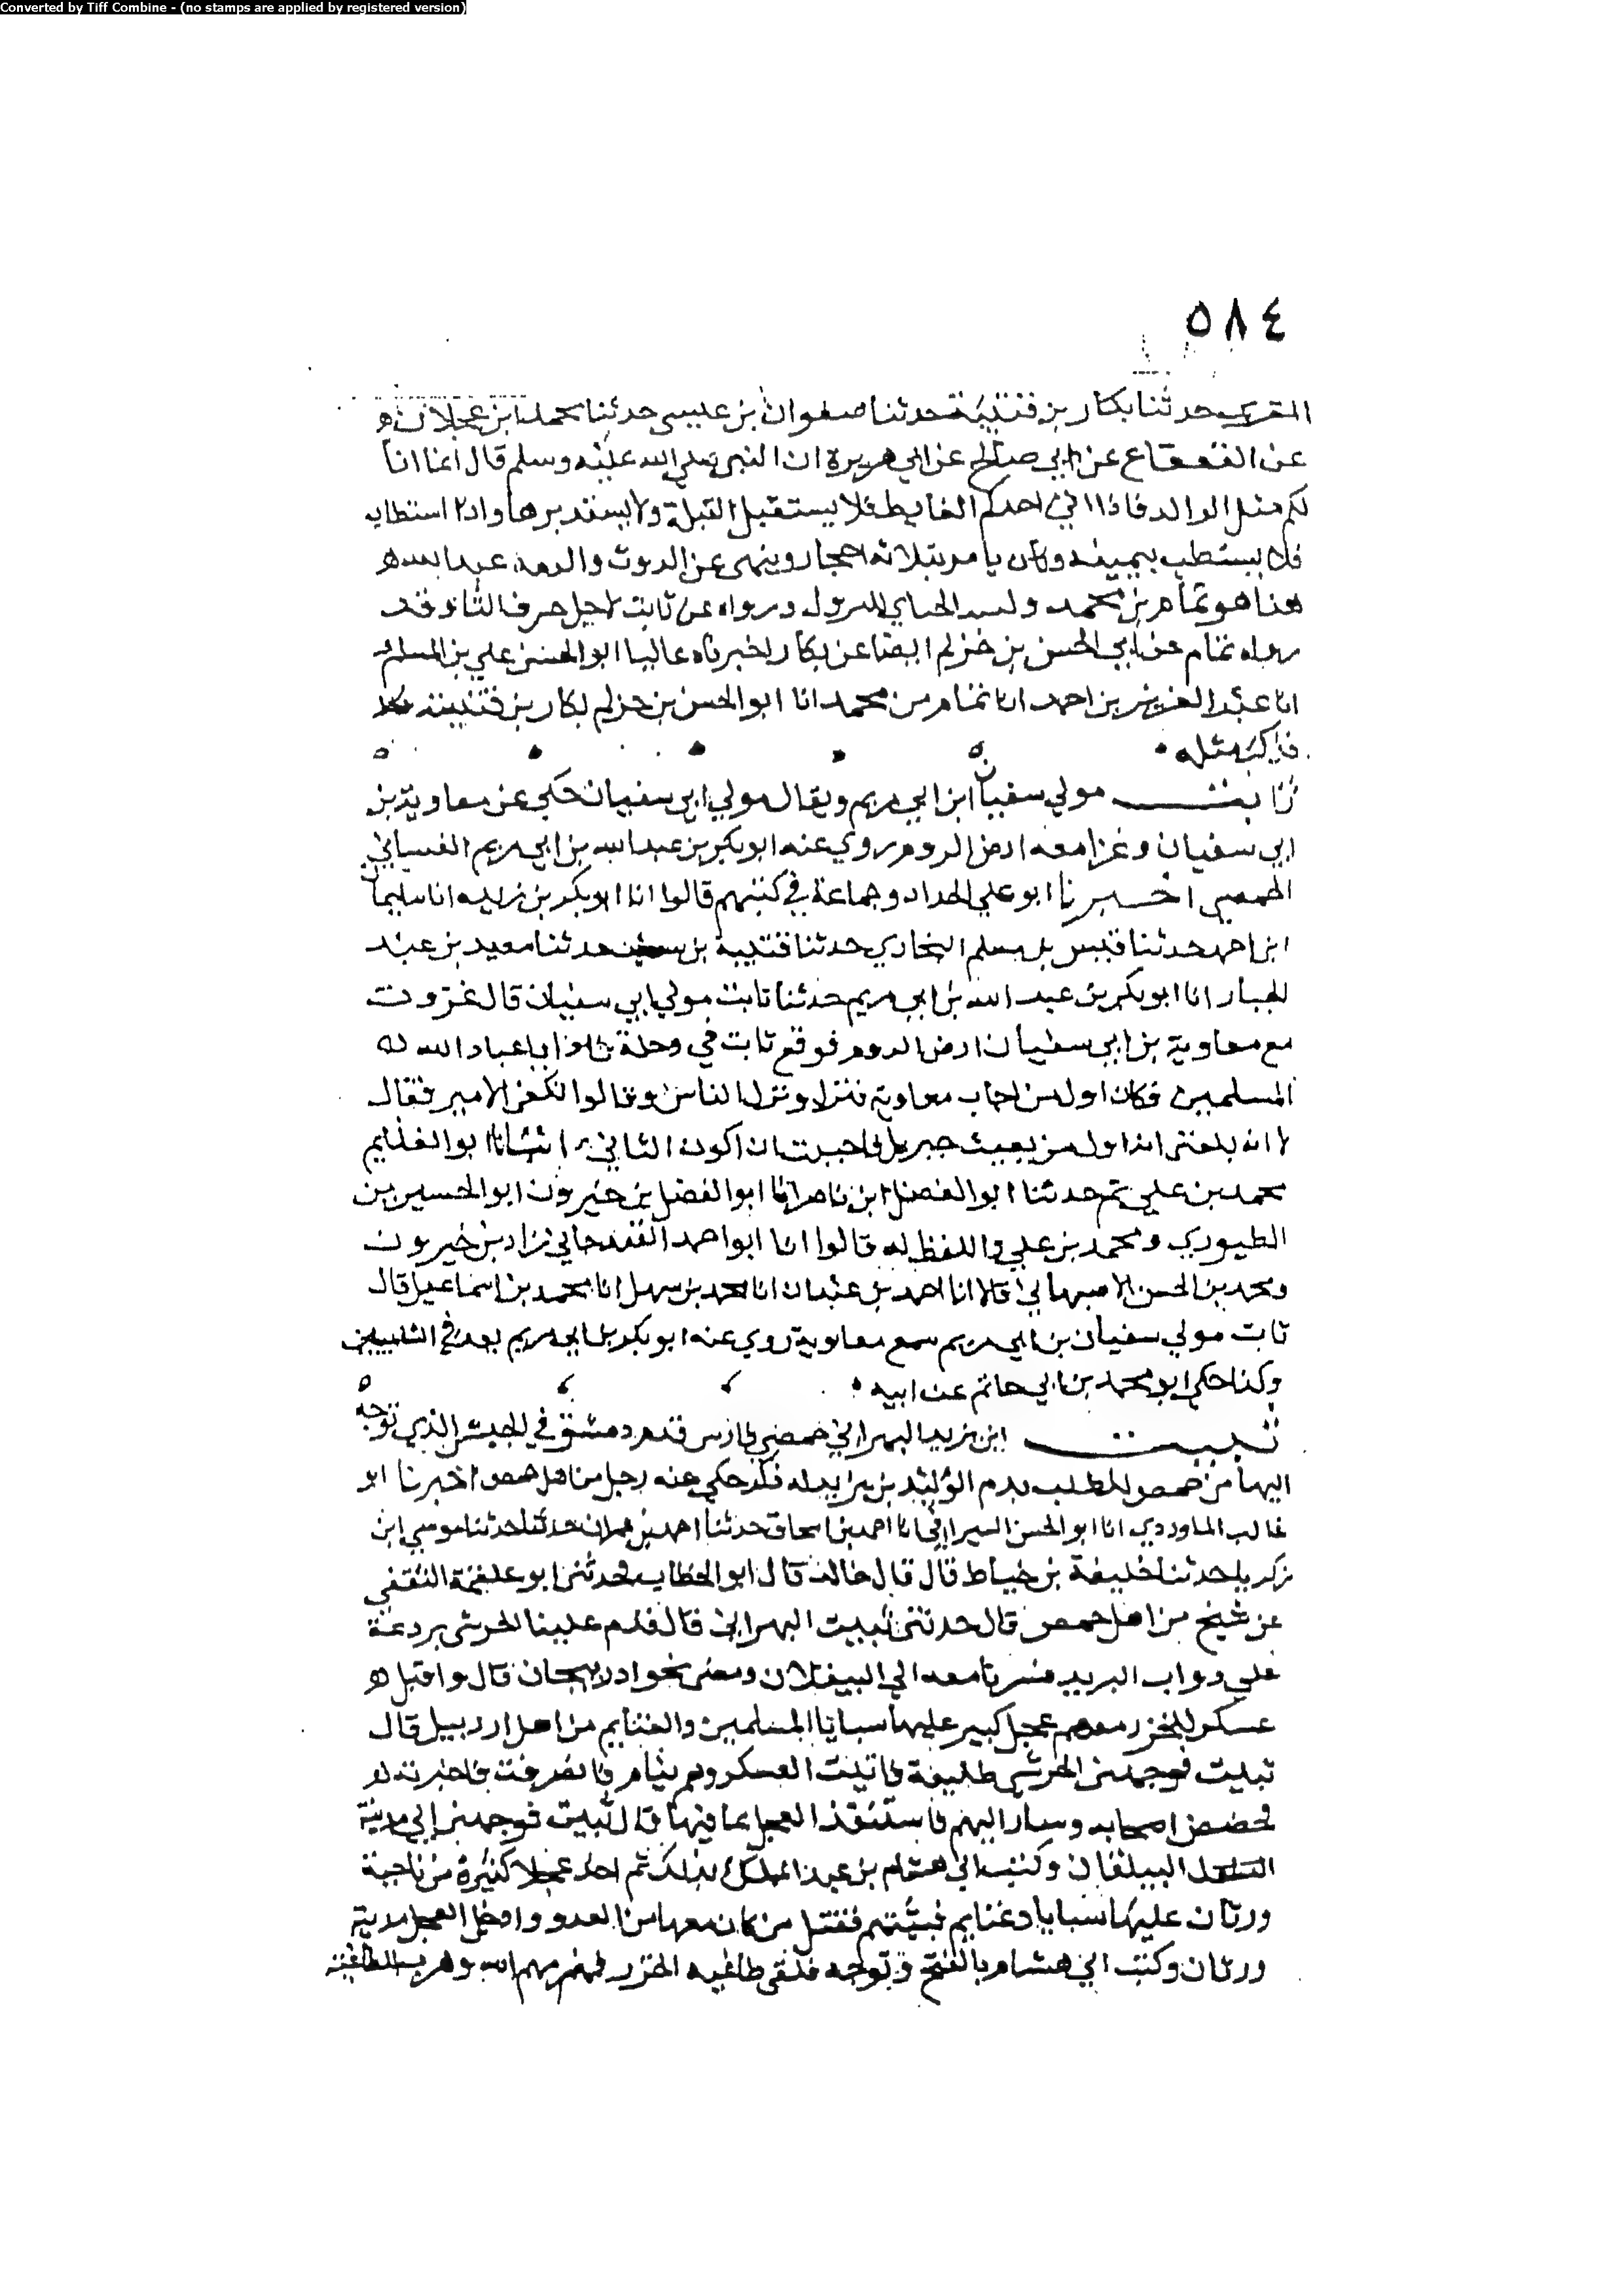 Converted by Tiff Combine - (no stamps are applied by registered version)
٥٨٤
حدثنا بكار بن قتيبة حدثنا صفوان بن عيسى حدثنا محمد ابن عجلان
عن القعقاع عن ابي صالح عن ابي هريرة ان النبي صلي الله عليه وسلم قال انما انا
لكم مثل الوالد فاذا اتي احدكم الغايط فلا يستقبل القبلة ولا يستدبرها واذا استطاب
فلا يستطب بيمينه وكان يامر بثلاثة احجار وينهى عن الروث والرمة
هذا هو تمام بن محمد وليس ورواه عن ثابت لاجل حرف الثا وقد
رواه تمام عن ابي الحسن بن حذلم ايضا عن بكار اخبرناه عاليا ابو الحسن علي بن المسلم
انا عبد العزيز بن احمد انا تمام بن محمد انا ابو الحسن بن حذلم بكار بن قتيبة
فذكر مثله
ثابت مولي سفيان ابن ابي مريم ويقال مولي ابي سفيان حكي عن معاوية بن
ابي سفيان وغزا معه ارض الروم روي عنه ابو بكر بن عبد الله بن ابي مريم الغساني
الحمصي اخبرنا ابو علي الحداد وجماعة في كتبهم قالوا انا ابو بكر بن ريذه انا سليمان
ابن احمد حدثنا قيس بن مسلم البخاري حدثنا قتيبة بن حدثنا معيد بن عبد
الجبار انا ابو بكر بن عبد الله بن ابي مريم حدثنا ثابت مولي ابي سفيان قال غزوت
مع معاوية بن ابي سفيان ارض الروم فوقع ثابت في وحلة يا عباد الله
المسلمين فكان اول من اجاب معاوية فنزل ونزل الناس وقالوا الامير فقال
لا انه بلغني انه اول من يغيث جبريل فاحببت ان اكون الثاني انبانا ابو الغنايم
محمد بن علي ثم حدثنا ابو الفضل ابن ناصر انا ابو الفضل بن خيرون ابو الحسين بن
الطيوري ومحمد بن علي واللفظ له قالوا انا ابو احمد الغندجاني زاد بن خيرون
ومحمد بن الحسن الاصبهاني قالا انا احمد بن عبدان انا محمد بن سهل انا محمد بن اسماعيل قال
ثابت مولي سفيان بن ابي مريم سمع معاوية روي عنه ابو بكر بن ابي مريم يعد في الشاميين
وكذا حكي ابو محمد بن ابي حاتم عن ابيه
ثبيت ابن يزيد البهراني حمصي فارس قدم دمشق في الجيش الذي توجه
اليها من حمص للطلب بدم الوليد بن يزيد له ذكر حكي عنه رجل من اهل حمص اخبرنا ابو
غالب الماوردي انا ابو الحسن السيرافي انا احمد بن اسحاق حدثنا احمد بن عمران حدثنا حدثنا موسي ابن
زكريا حدثنا خليفة بن خياط قال قال خالد قال ابو الخطاب فحدثني ابو علقمة الثقفي
عن شيخ من اهل حمص قال حدثني ثبيت البهراني قال قدم علينا الحرشي بردعة
علي دواب البريد فسرنا معه الي البيلقان ومضى نحو اذربيجان قال واقبل
عسكر للخزر معهم عجل كبير عليها سبايا المسلمين والغنايم من اهل اردبيل قال
ثبيت فوجهني الحرشي طليعة فاتيت العسكر وهم نيام فانصرفت فاخبرته
فحضض اصحابه وسار اليهم فاستنقذ العجل بما فيها قال ثبيت فوجهني إلي مدينة
البيلقان وكتب الي هشام بن عبد الملك بذلك ثم اخذ عجلا كثيرة من ناحية
ورثان عليها سبايا وغنايم فبيتهم فقتل من كان معها من العدو وادخل العجل مدينة
ورثان وكتب الي هشام بالفتح وتوجه فلقى طاغية الخزر فهزمهم الله وهرب الطاغية